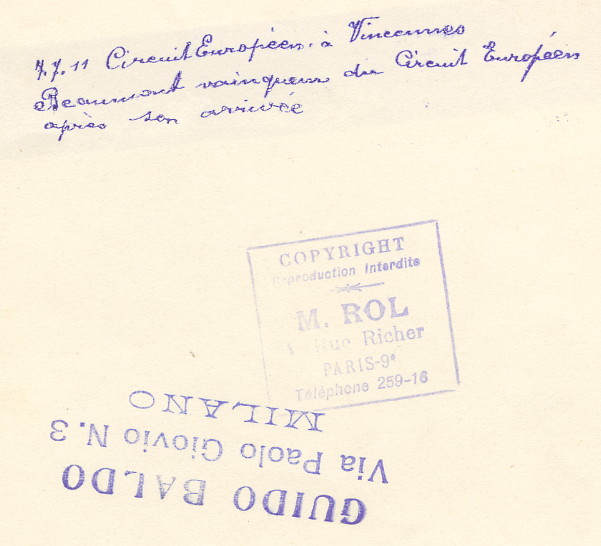 7.7.11 Circuit Européen à Vincennes
Beaumont vainqueur du Circuit Européen
après son arrivée
COPYRIGHT
Reproduction Interdite
M. ROL
Rue Richer
PARIS-9e
Téléphone 259-16
GUIDO BALDO
Via Paolo Giovio N. 3
MILANO